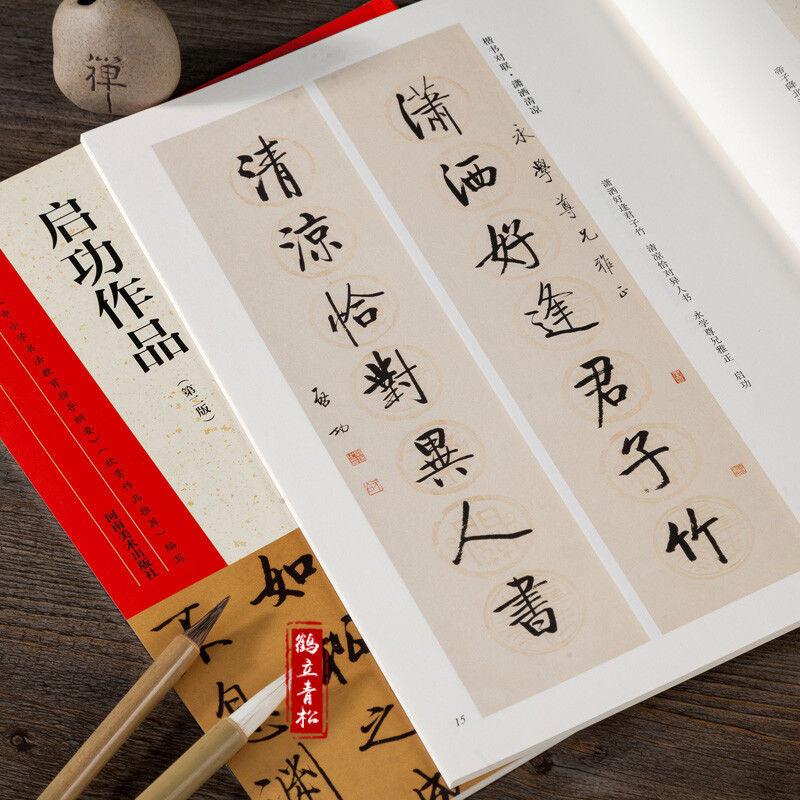 禅
楷书对联·潇洒清凉
瀟洒好逢君子竹
永學尊兄雅正
清涼恰對異人書
啟功
潇洒好逢君子竹 清凉恰对异人书 永学尊兄雅正 启功
帝子降北
15
启功作品
(第二版)
中小学书法教育指导纲要》(欣赏作品推荐)编写
河南美术出版社
如
不息
之
渊
鹤立青松